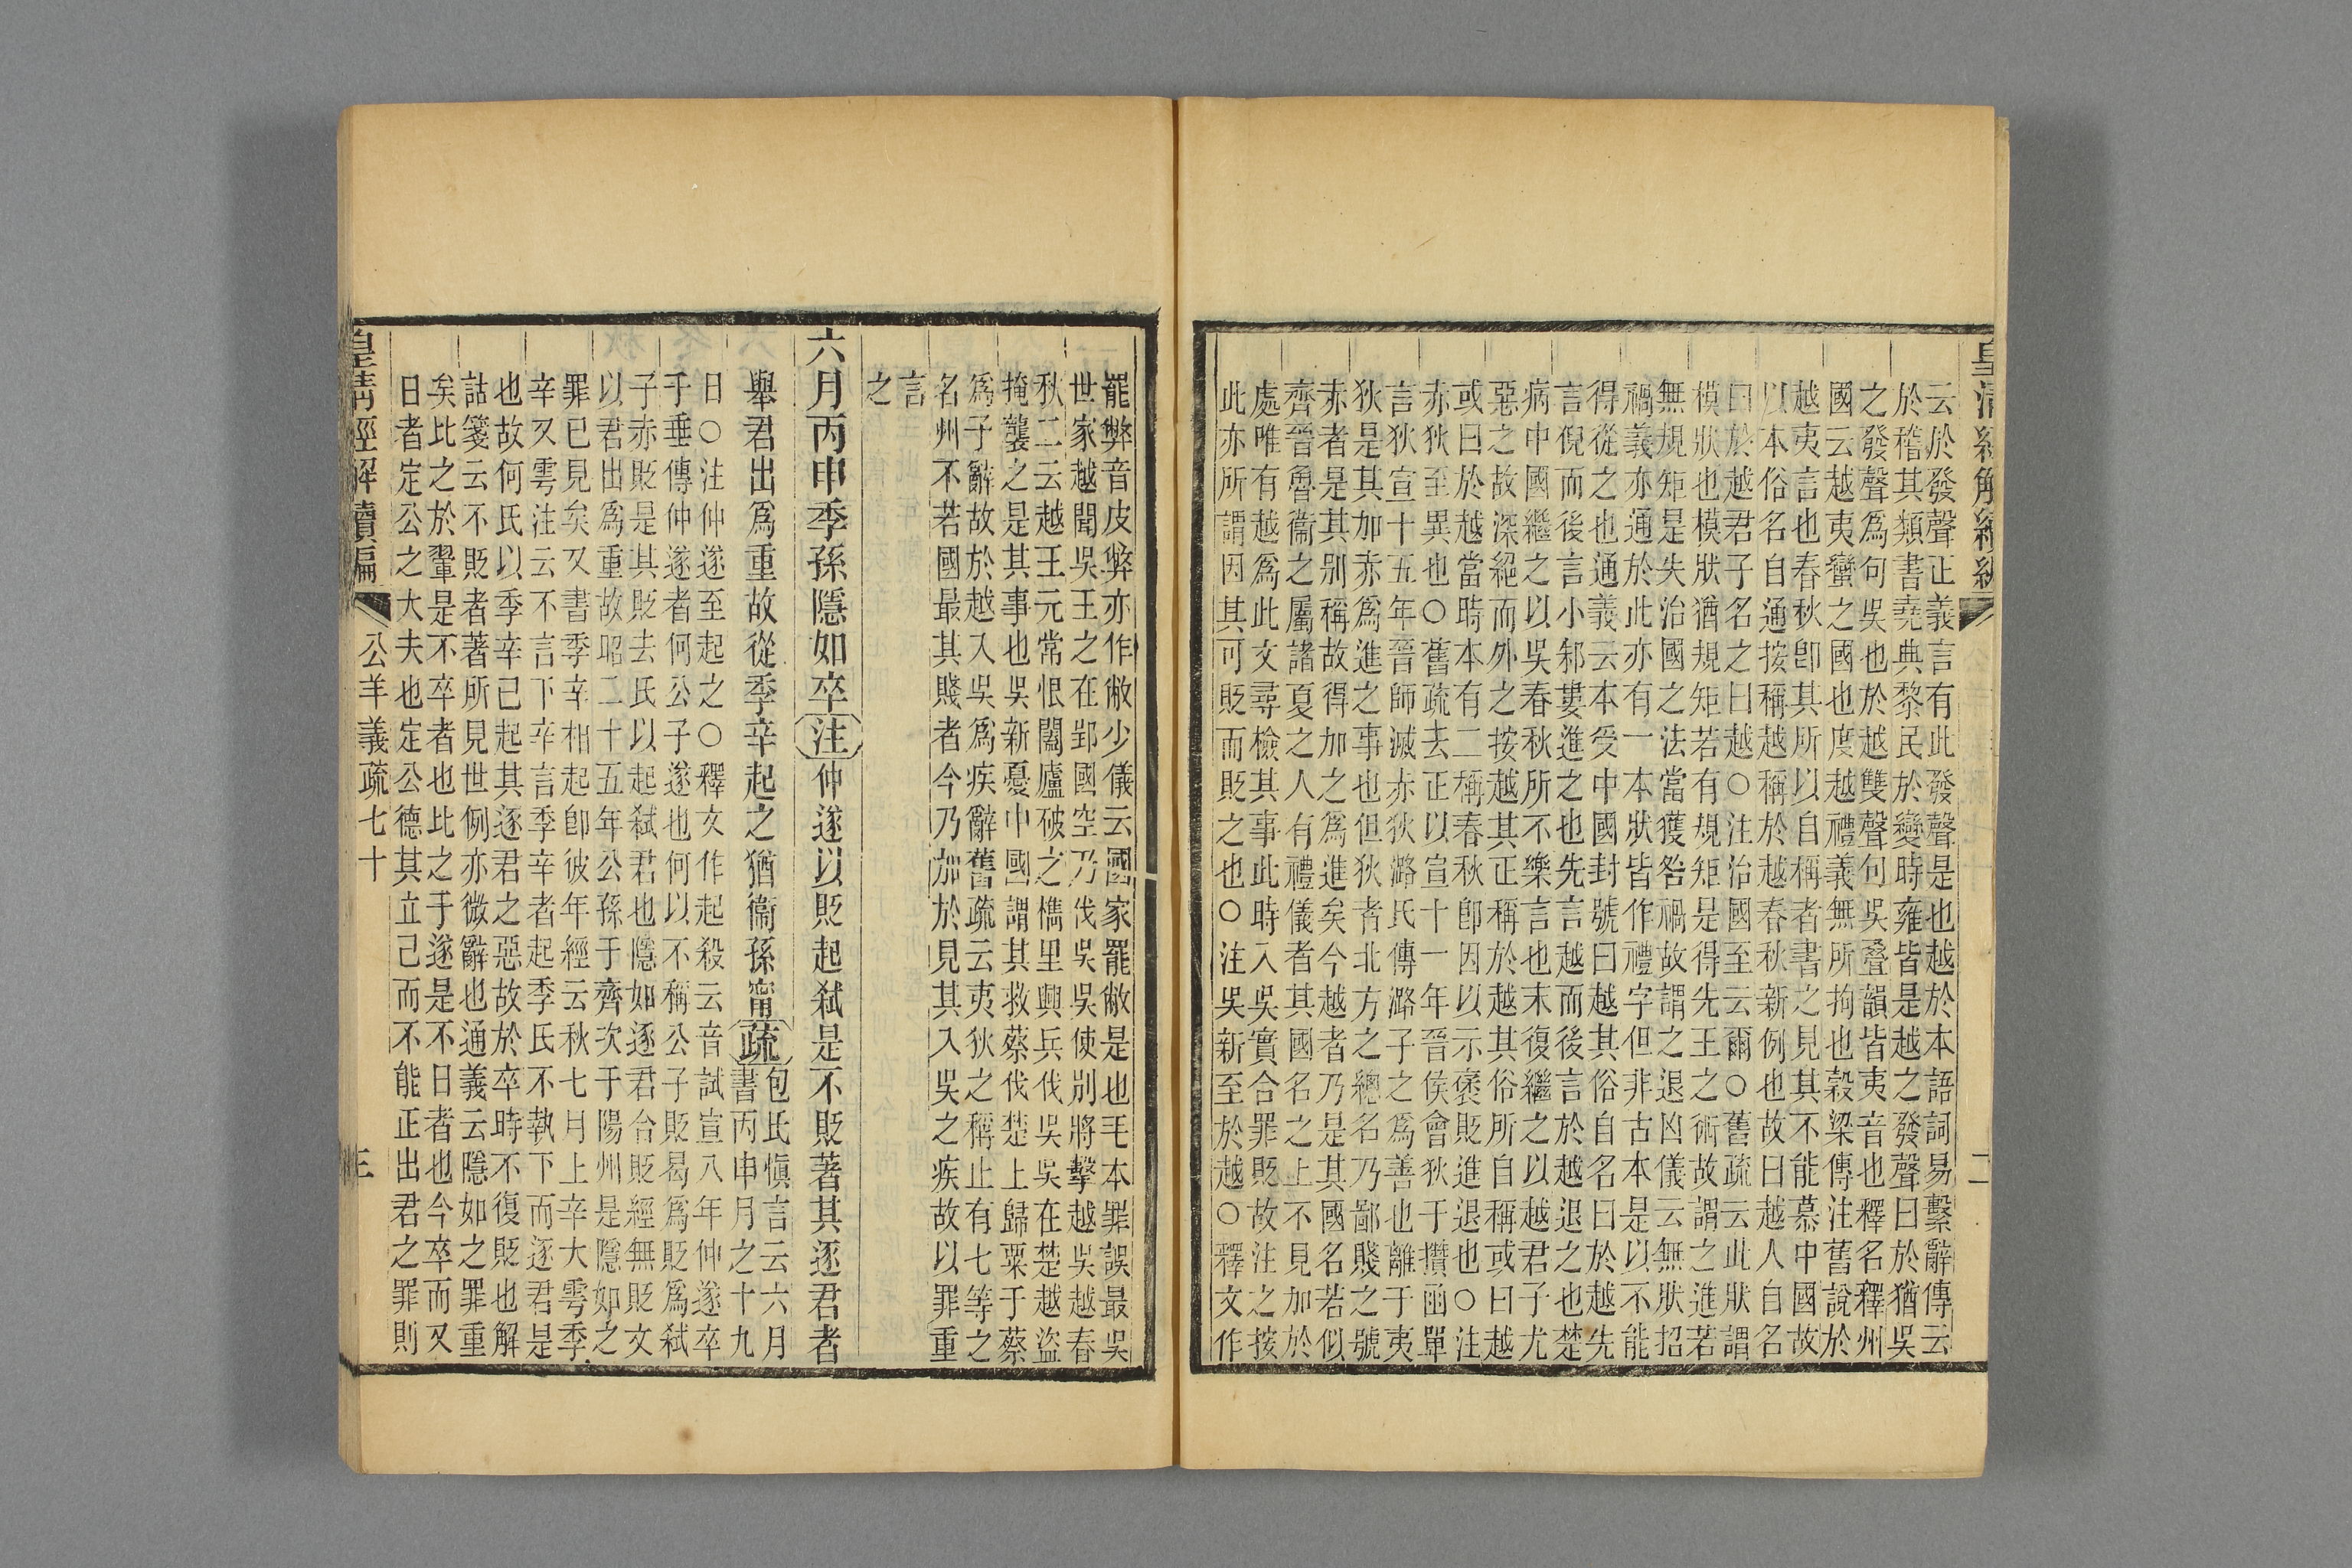 皇清經解續編
二
云於發聲正義言有此發聲是也越於本語詞易繫辭傳云
於稽其類書堯典黎民於變時雍皆是越之發聲曰於猶吳
之發聲爲句吳也於越雙聲句吳疊韻皆夷音也釋名釋州
國云越夷蠻之國也度越禮義無所拘也穀梁傳注舊說於
越夷言也春秋卽其所以自稱者書之見其不能慕中國故
以本俗名自通按稱越稱於越春秋新例也故曰越人自名
曰於越君子名之曰越○注治國至云爾○舊疏云此狀謂
模狀也模狀猶規矩若有規矩是得先王之術故謂之進若
無規矩是失治國之法當獲咎禍故謂之退凶儀云無狀招
禍義亦通於此亦有一本狀皆作禮字但非古本是以不能
得從之也通義云本受中國封號曰越其俗自名曰於越先
言倪而後言小邾婁進之也先言越而後言於越退之也楚
病中國繼之以吳春秋所不樂言也末復繼之以越君子尤
惡之故深絕而外之按越其正稱於越其俗所自稱或曰越
或曰於越當時本有二稱春秋卽因以示褒貶進退也○注
赤狄至異也○舊疏去正以宣十一年晉侯會狄于攢函單
言狄宣十五年晉師滅赤狄潞氏傳潞子之爲善也離于夷
狄是其加赤爲進之事也但狄者北方之總名乃鄙賤之號
赤者是其別稱故得加之爲進矣今越者乃是其國名若似
齊晉魯衞之屬諸夏之人有禮儀者其國名之上不見加於
處唯有越爲此文尋檢其事此時入吳實合罪貶故注之按
此亦所謂因其可貶而貶之也○注吳新至於越○釋文作
罷弊音皮弊亦作敝少儀云國家罷敝是也毛本罪誤最吳
世家越聞吳王之在郢國空乃伐吳吳使別將擊越吳越春
秋二云越王元常恨闔廬破之檇里興兵伐吳吳在楚越盜
掩襲之是其事也吳新憂中國謂其救蔡伐楚上歸粟于蔡
爲子辭故於越入吳爲疾辭舊疏云夷狄之稱止有七等之
名州不若國最其賤者今乃加於見其入吳之疾故以罪重
言
之
六月丙申季孫隱如卒注仲遂以貶起弒是不貶著其逐君者
舉君出爲重故從季辛起之猶衞孫甯疏包氏愼言云六月
書丙申月之十九
日○注仲遂至起之○釋文作起殺云音試宣八年仲遂卒
于垂傳仲遂者何公子遂也何以不稱公子貶曷爲貶爲弒
子赤貶是其貶去氏以起弒君也隱如逐君合貶經無貶文
以君出爲重故昭二十五年公孫于齊次于陽州是隱如之
罪已見矣又書季辛相起卽彼年經云秋七月上辛大雩季
辛又雩注云不言下辛言季辛者起季氏不執下而逐君是
也故何氏以季辛已起其逐君之惡故於卒時不復貶也解
詁箋云不貶者著所見世例亦微辭也通義云隱如之罪重
矣比之於翬是不卒者也比之于遂是不日者也今卒而又
日者定公之大夫也定公德其立己而不能正出君之罪則
皇清經解續編
公羊義疏七十
三